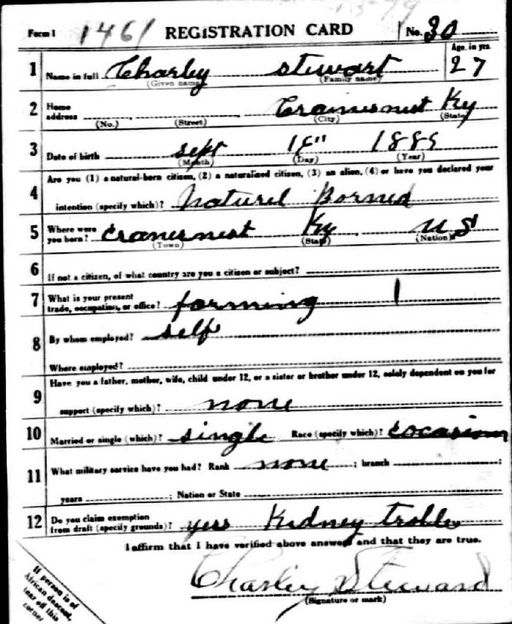 Form 1 1461 REGISTRATION CARD No. 30
Age, in yrs.
1 Name in full Charley Stewart 27
(Given name) (Family name)
2 Home address Cranesnest Ky
(No.) (Street) (City) (State)
3 Date of birth Sept 18" 1889
(Month) (Day) (Year)
Are you (1) a natural-born citizen, (2) a naturalized citizen, (3) an alien, (4) or have you declared your
4 intention (specify which)? Naturel Borned
5 Where were you born? Cranesnest Ky US
(Town) (State) (Nation)
6 If not a citizen, of what country are you a citizen or subject?
7 What is your present trade, occupation, or office? farming
8 By whom employed? self
Where employed?
Have you a father, mother, wife, child under 12, or a sister or brother under 12, solely dependent on you for
9 support (specify which)? none
10 Married or single (which)? single Race (specify which)? cocasion
11 What military service have you had? Rank none ; branch ;
years ; Nation or State
12 Do you claim exemption from draft (specify grounds)? yess Kidney troble
I affirm that I have verified above answers and that they are true.
Charley Steward
(Signature or mark)
If person is of
African descent,
tear off this
corner